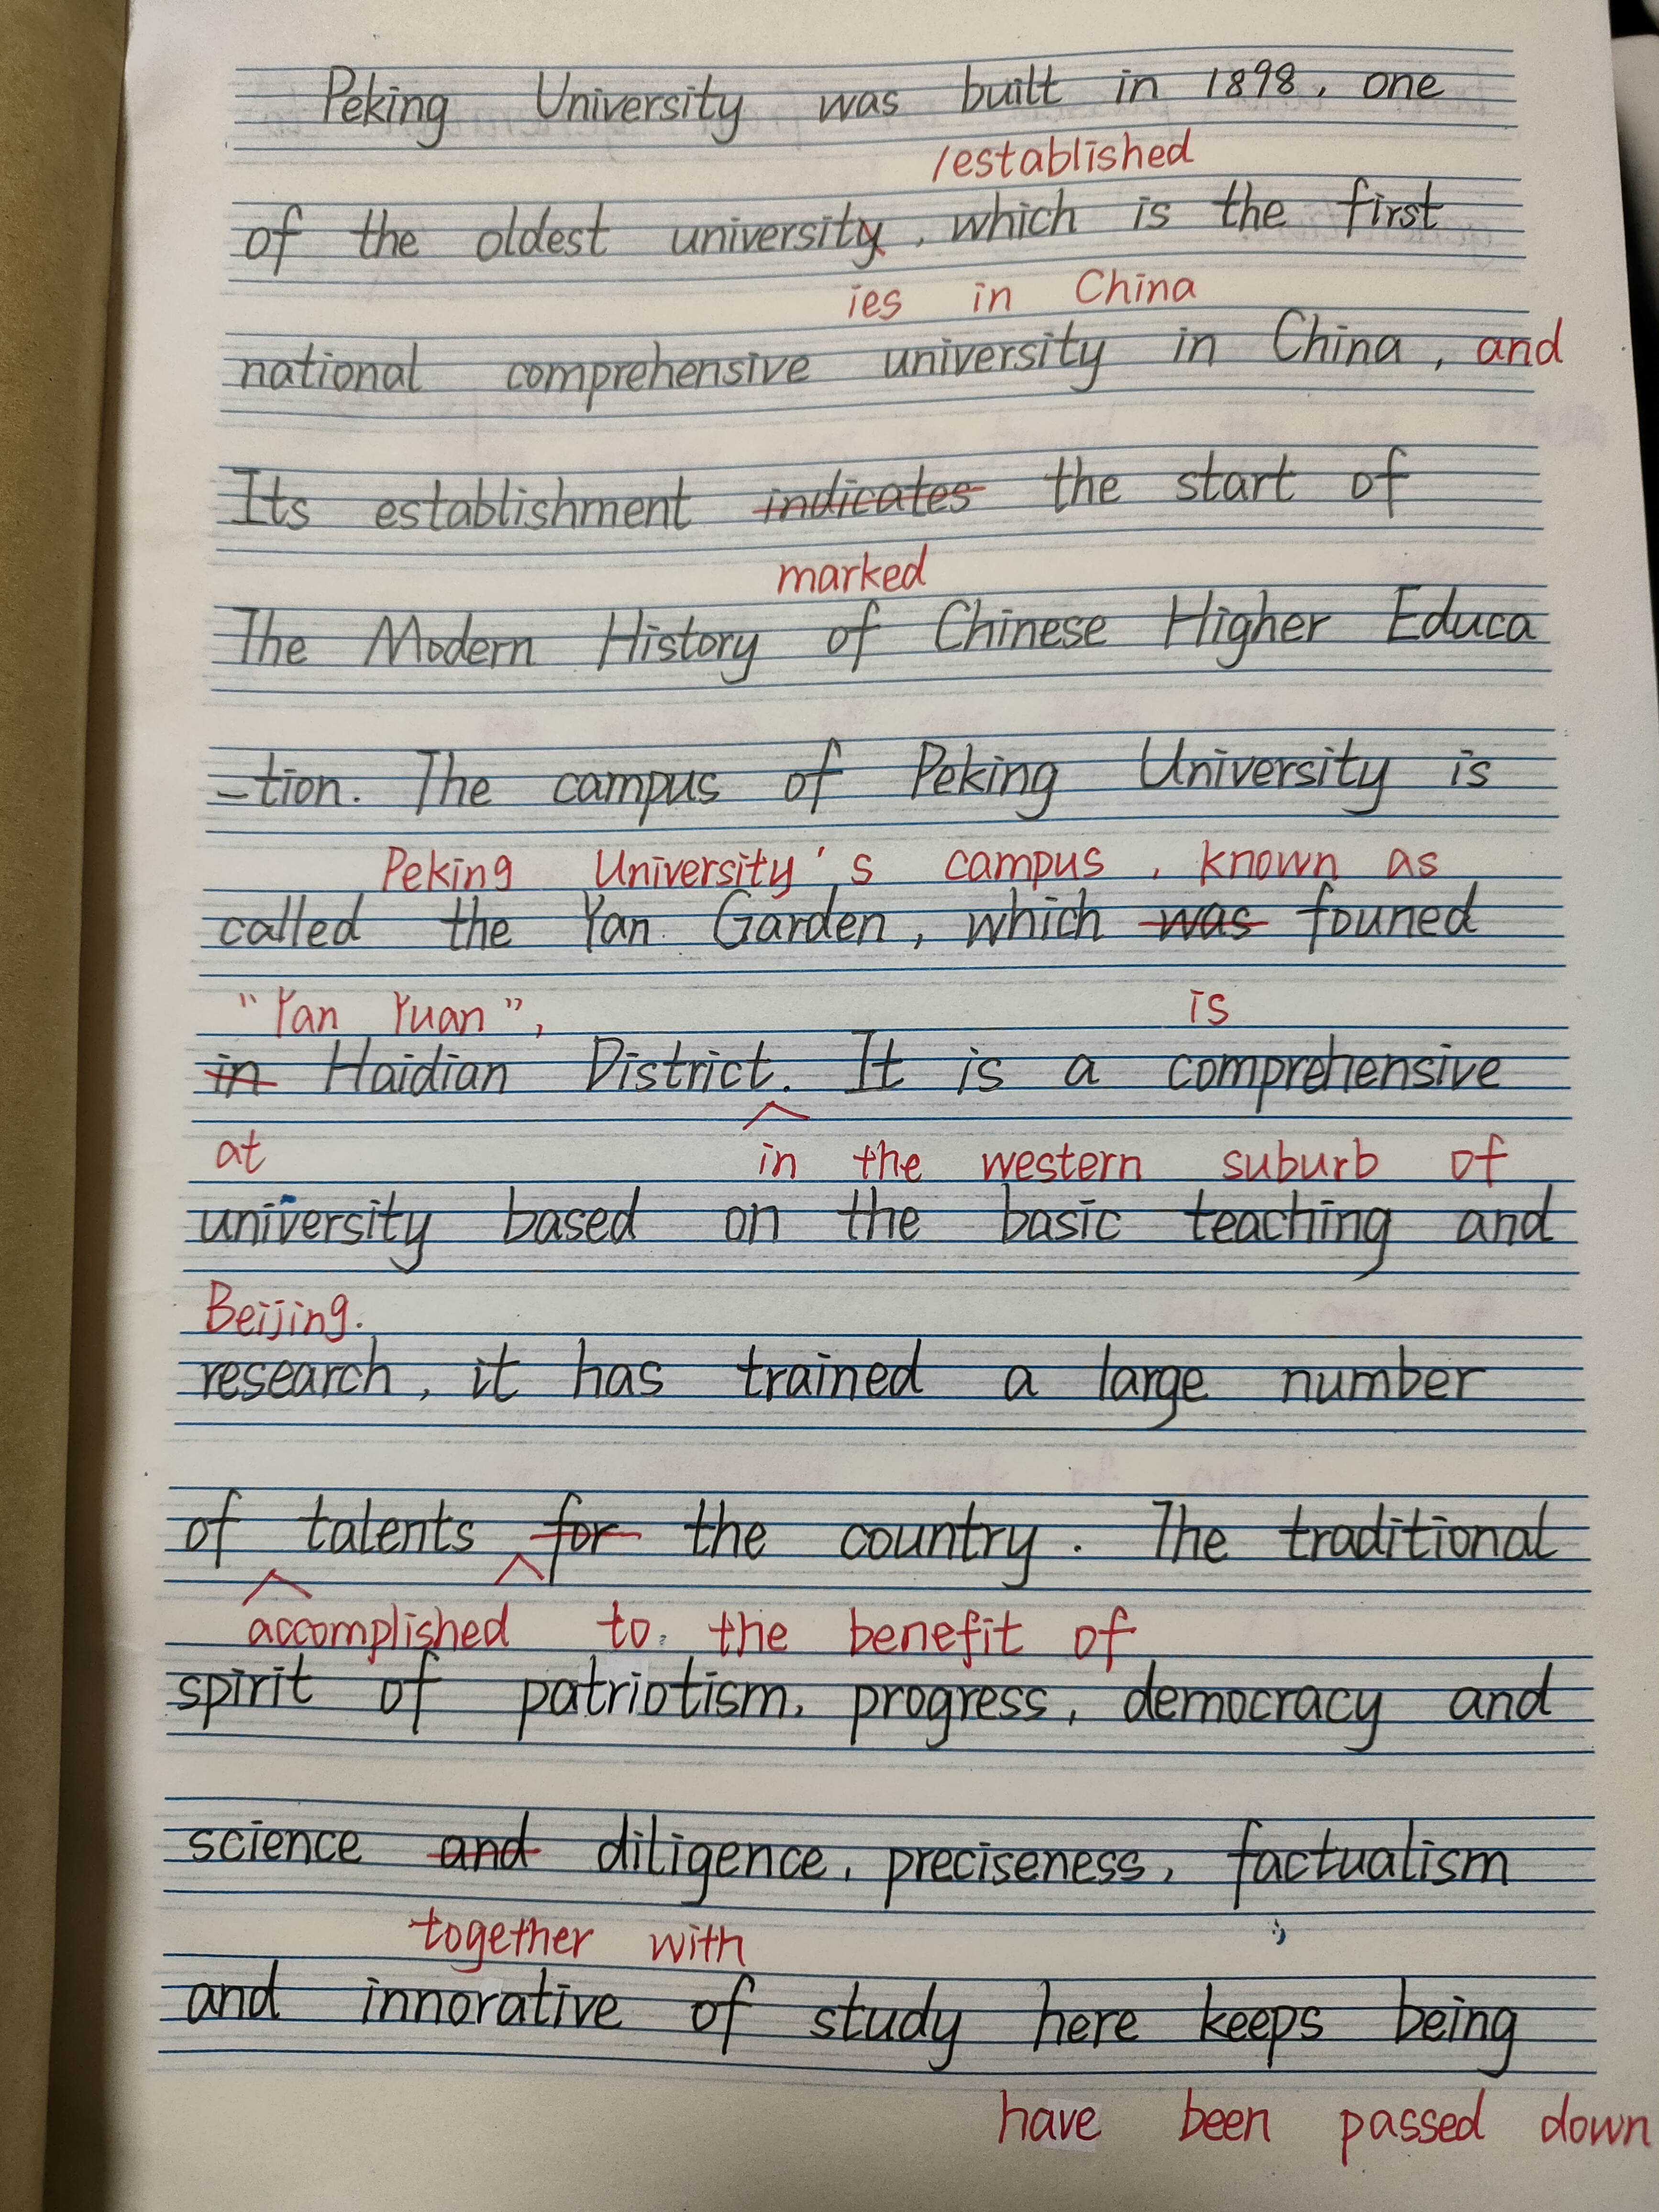 Peking University was built in 1898, one
/established
of the oldest university, which is the first
ies in China
national comprehensive university in China, and
Its establishment indicates the start of
marked
The Modern History of Chinese Higher Educa
-tion. The campus of Peking University is
Peking University's campus, known as
called the Yan Garden, which was founed
"Yan Yuan", is
in Haidian District. It is a comprehensive
at in the western suburb of
university based on the basic teaching and
Beijing.
research, it has trained a large number
of talents for the country. The traditional
accomplished to the benefit of
spirit of patriotism, progress, democracy and
science and diligence, preciseness, factualism
together with
and innorative of study here keeps being
have been passed down